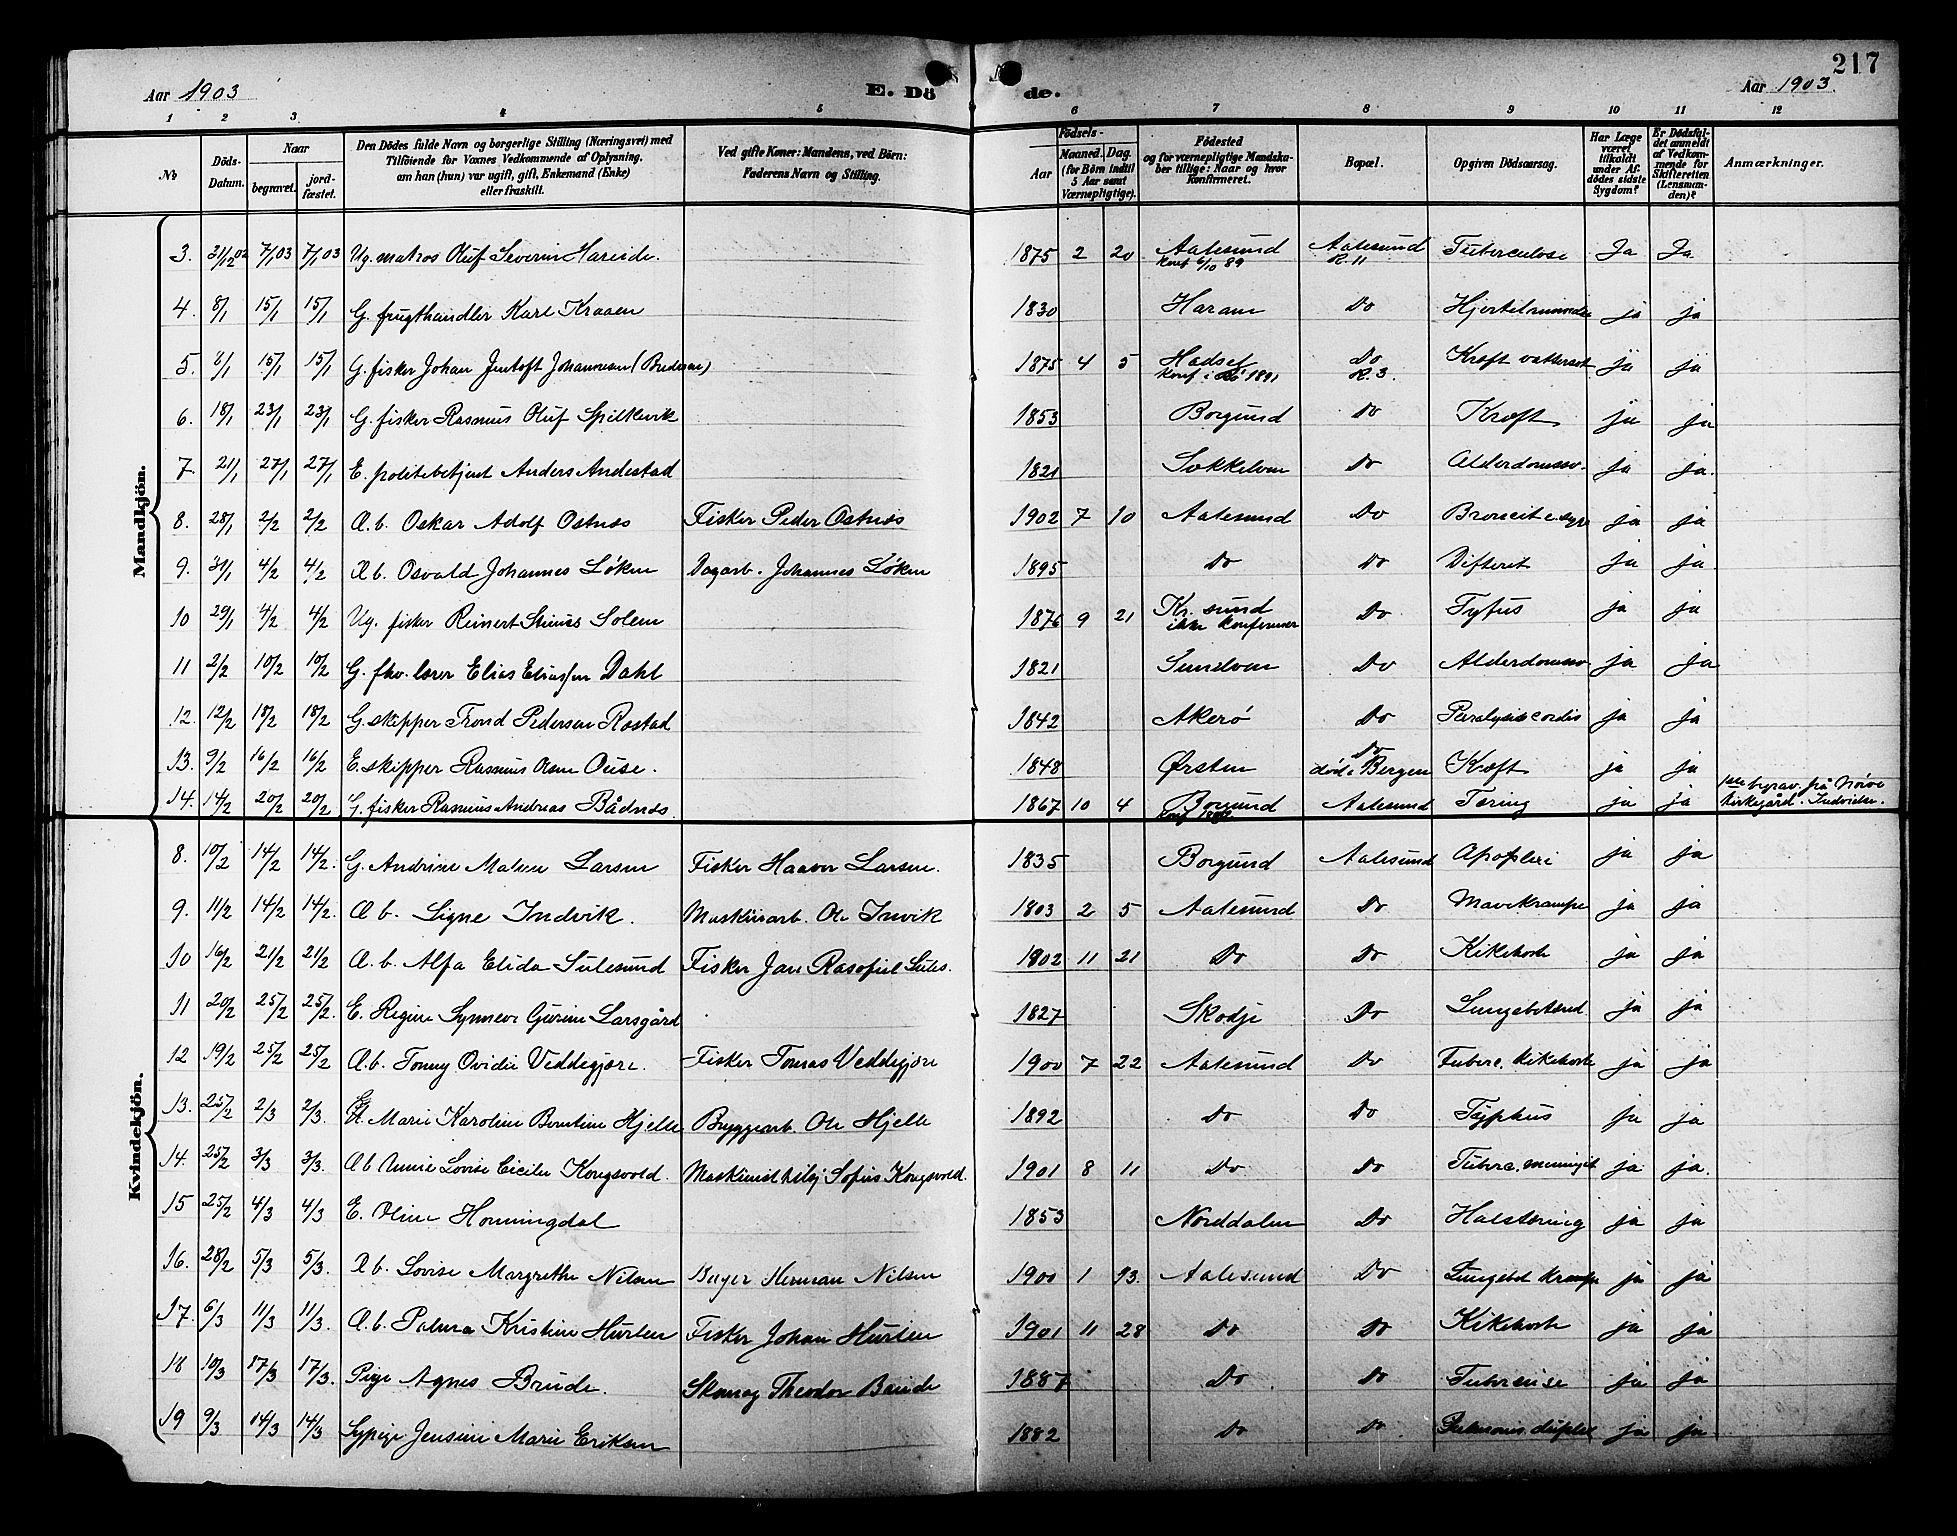 217
Aar 1903
E. Dö de.
Aar 1903.
1 2 3. 4 5 6 7 8 9 10 11 12
No
Döds-Datum.
Naar
begravet.
jord-fæstet.
Den Dödes fulde Navn og borgerlige Stilling (Næringsvei) med
Tilföiende for Voxnes Vedkommende af Oplysning.
om han (hun) var ugift, gift, Enkemand (Enke)
eller fraskilt.
Ved gifte Koner: Mandens, ved Börn:
Faderens Navn og Stilling.
Födsels-
Aar
Maaned. Dag.
(for Börn indtil
5 Aar samt
Værnepligtige).
Födested
og for værnepligtige Mandska-
ber tillige: Naar og hvor
Konfirmeret.
Bopæl.
Opgiven Dödsaarsag.
Har Læge
været
tilkaldt
under Af-
dödes sidste
Sygdom?
Er Dödsfal-
det anmeldt
af Vedkom-
mende for
Skifteretten
(Lensman-
den)?
Anmærkninger.
Mandkjön.
3. 31/12 02 7/1 03 7/1 03 Ug. matros Oluf Severin Hareide. 1875 2 20 Aalesund Aalesund Tuberculose Ja Ja
Konf 6/10 89 R. 11
4. 8/1 15/1 15/1 G. frugthandler Karl Kraaen 1830 Haram Do ja ja
5. 8/1 15/1 15/1 G. fisker Johan Jentoft Johannesen 1875 4 5 Hadsel Do Kræft ja ja
R. 3.
6. 18/1 23/1 23/1 G. fisker Rasmus Oluf Spilkevik 1853 Borgund Do Kræft ja ja
7. 21/1 27/1 27/1 E. politebetjent Anders Andestad 1821 Søkkelven Do Alderdomssv. ja ja.
8. 28/1 2/2 2/2 Æ. b. Oskar Adolf Ostnes Fisker Peder Ostnes 1902 7 10 Aalesund Do ja ja
9. 31/1 4/2 4/2 Æ b. Osvald Johannes Løken Dagarb. Johannes Løken 1895 Do Do Difterit ja ja
10 29/1 4/2 4/2 Ug. fisker Reinert Solem 1876 9 21 Kr. sund Do Tyfus ja ja
ikke
11 2/2 10/2 10/2 G. fhv. lærer Elias Eliassen Dahl 1821 Do Alderdomssv ja ja
12. 12/2 18/2 18/2 G. skipper Trond Pedersen Rostad 1842 Akerø Do Paralysis cordis ja ja
13. 9/2 16/2 16/2 E. skipper Rasmus Olsen Ouse. 1848 Ørsten Do død i Bergen Kræft ja ja
14. 14/2 20/2 20/2 G. fisker Rasmus Andreas Bådnes. 1867 10 4 Borgund Aalesund Tæring ja ja 1ste begrav. på Nørve
Kirkegård. Indvielse.
Kvindekjön.
8. 10/2 14/2 14/2. G. Andrine Larsen Fisker Haavor Larsen. 1835 Borgund Aalesund Apoplexi ja ja
9. 11/2 14/2 14/2. Æ b. Signe Indvik. Maskinarb. Ole Invik 1803 2 5 Aalesund Do Mavekrampe ja ja
10 16/2 21/2 21/2 Æ. b. Alfa Elida Sulesund Fisker Jan Sules. 1802 11 21 Do Do Kikehoste ja ja
11 20/2 25/2 25/2. E. Regine Synneve Larsgård 1827 Skodje Do Lungebetænd ja ja
12 19/2 25/2 25/2 Æ. b. Tonny Ovidie Veddegjere. Fisker Tomas Veddegjere 1900 7 22 Aalesund Do Tuberc. Kikehoste ja ja
13. 25/2 2/3 2/3. Marie Karoline Berntine Hjelle Bryggearb. Ole Hjelle 1892 Do Do Typhus ja ja
14. 25/2 3/3 3/3. Æ b Lovise Cicilie Kongsvold. Sofus Kongsvold. 1901 8 11 Do Do Tuberc. meningit ja ja.
15 25/2 4/3 4/3 E. Oline Honningdal 1853 Norddalen Do Halstæring ja ja
16. 28/2 5/3 5/3. Æ b. Lovise Margrethe Nilsen Herman Nilsen 1900 1 13. Aalesund Do Lungebet krampe ja ja
17. 6/3 11/3 11/3. Æ. b. Palma Kristine Hurlen Fisker Johan Hurlen 1901 11 28 Do Do Kikehoste ja ja
18 10/3 17/3 17/3. Pige Agnes Brude. Skomag Theodor Brude 1887 Do Do Tuberculose ja ja
19 9/3 14/3 14/3 Sypige Jensine Marie Eriksen 1882 Do Do ja ja